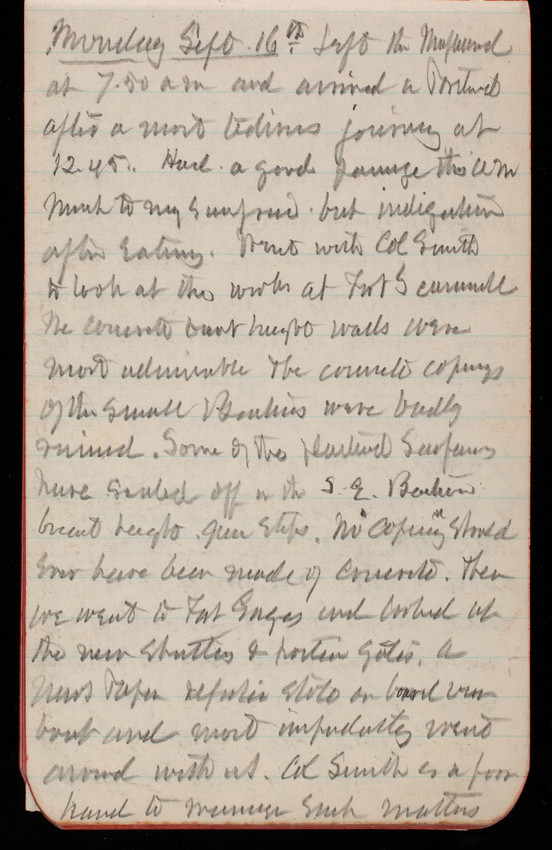 Monday Sept. 16th Left the
at 7.50 am and arrived a Portland
after a most tedious journey at
12.45. Had a good passage this am
much to my surprise but indigestion
after eating. Went with Col Smith
to look at the works at Fort Scammell
The concrete breast height walls were
most admirable The concrete copings
of the small Bastions were badly
ruined. Some of the plastered Surfaces
have scaled off in the S. E. Bastion
breast height gun steps. No "coping" should
ever have been made of concrete. Then
we went to Fort Gorges and looked at
the new shutters & postern gates. A
News Paper reporter stole on board our
boat and most impudently went
around with us. Col Smith is a poor
hand to manage such matters